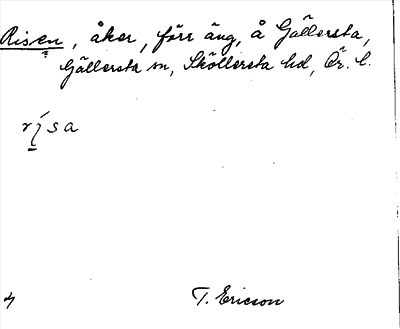 Risen, åker, förr äng, å Gällersta,
Gällersta sn, Sköllersta hd, Ör. l.
risa
T. Ericson